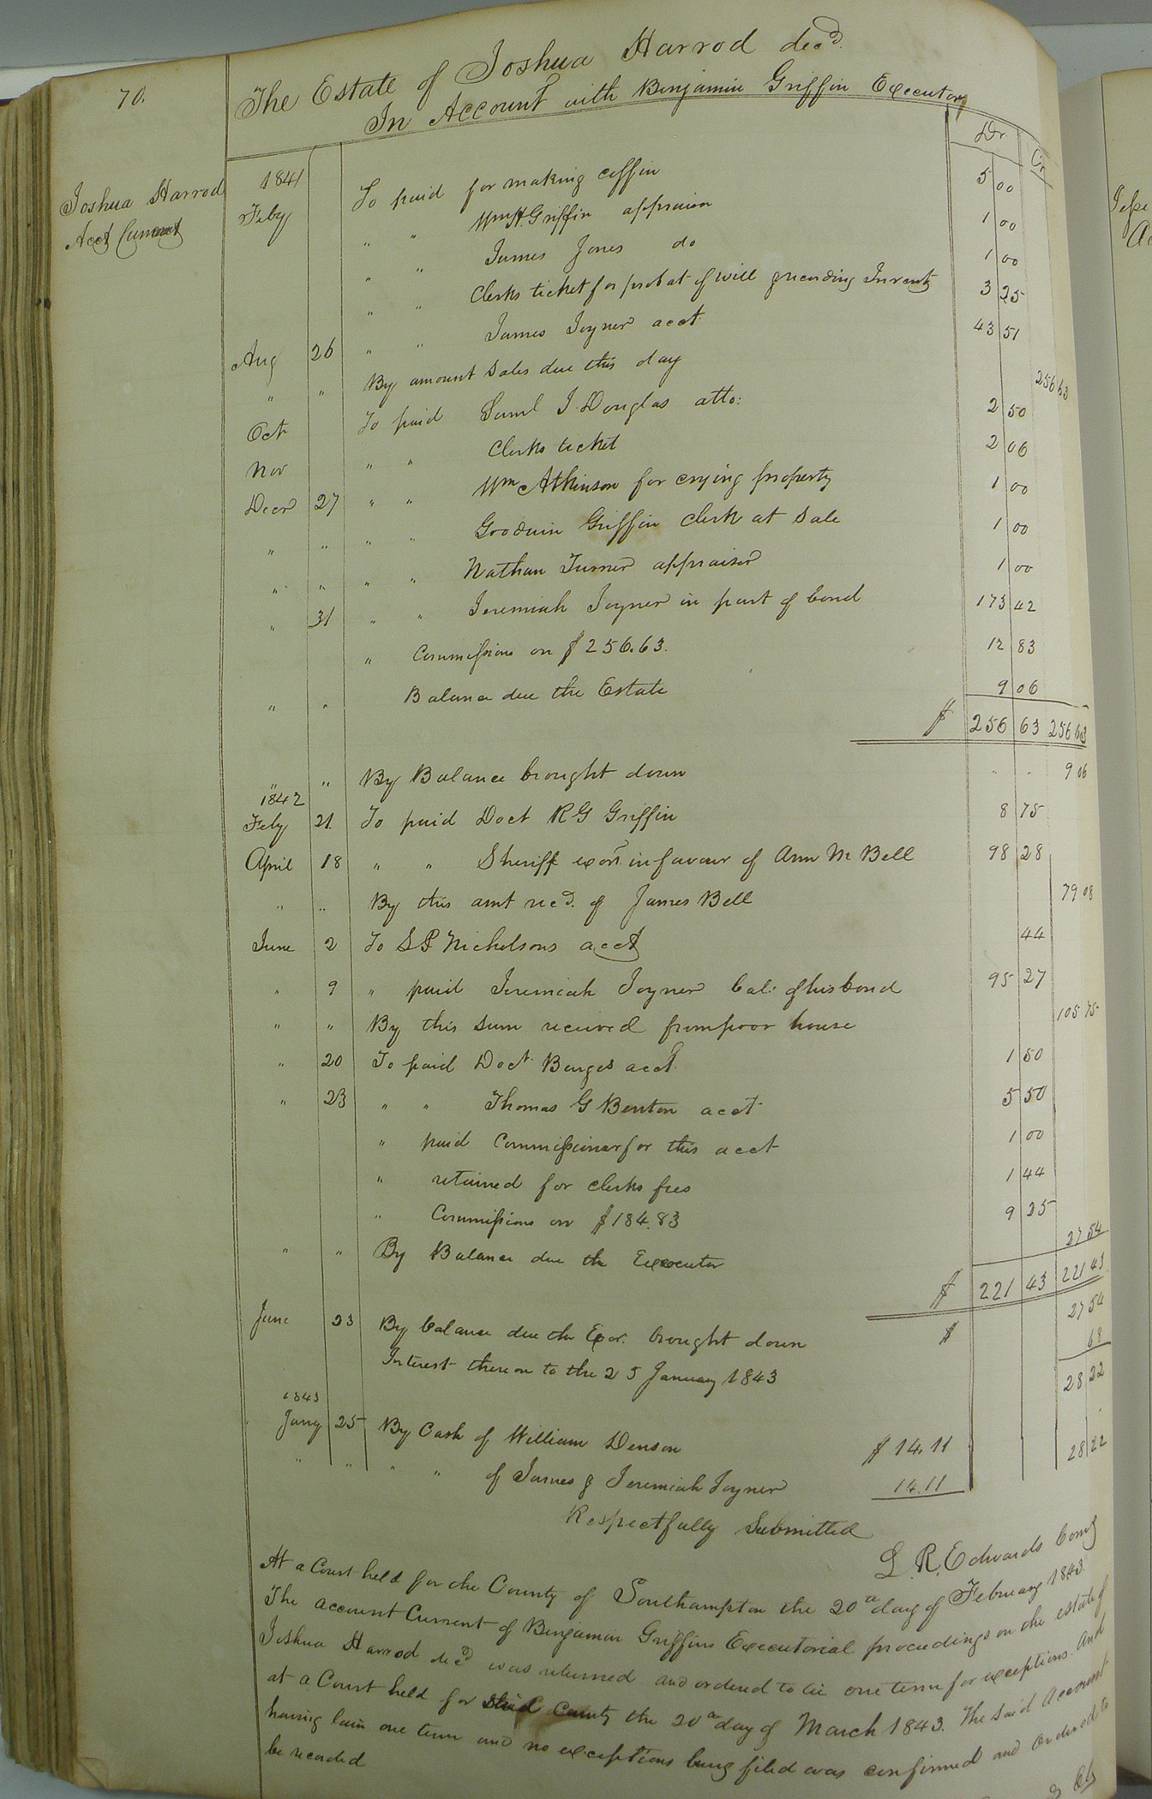 70.
The Estate of Joshua Harrod decd.
In Account with Benjamin Griffin Executor
Dr Cr
Joshua Harrod
Acct Current
1841
Feby To paid for making coffin 5 00
" " Wm H. Griffin appraiser 1 00
" " James Jones do 1 00
" " Clerks ticket for probat of will & recording Invent 3 25
Aug 26 " " James Joyner acct 43 51
" " By amount sales due this day 256 63
Oct To paid Saml J. Douglas atto: 2 50
Nov " " Clerks ticket 2 06
Decr 27 " " Wm Atkinson for crying property 1 00
" " " " Goodwin Griffin clerk at sale 1 00
" " " " Nathan Turner appraiser 1 00
" 31 " " Jeremiah Joyner in part of bond 173 42
" Commissions on $256.63. 12 83
" " Balance due the Estate 9 06
$ 256 63 256 63
" " By Balance brought down " " 9 06
1842
Feby 21. To paid Doct R G Griffin 8 75
April 18 " " Sheriff exon in favour of Ann M Bell 98 28
" " By this amt recd. of James Bell 79 08
June 2 To S P Nicholsons acct 44
" 9 " paid Jeremiah Joyner bal: of his bond 95 27
" " By this sum received from poor house 105 75
" 20 To paid Doct Burges acct 1 50
" 23 " " Thomas G Benton acct 5 50
" paid Commissioner for this acct 1 00
" retained for clerks fees 1 44
" Commissions on $184.83 9 25
" " By Balance due the Executor 27 54
$ 221 43 221 43
June 23 By balance due the Exor. brought down $ 27 54
Interest thereon to the 25 January 1843 68
28 22
1843
Jany 25 By Cash of William Denson $14.11
" " " " of James & Jeremiah Joyner 14.11 28 22
Respectfully Submitted
L. R. Edwards Comr
At a Court held for the County of Southampton the 20th day of February 1843
The account Current of Benjamin Griffins Executorial proceedings on the estate of
Joshua Harrod decd was returned and ordered to lie one term for exceptions. And
at a Court held for said County the 20th day of March 1843. The said Account
having lain one term and no exceptions being filed was confirmed and ordered to
be recorded